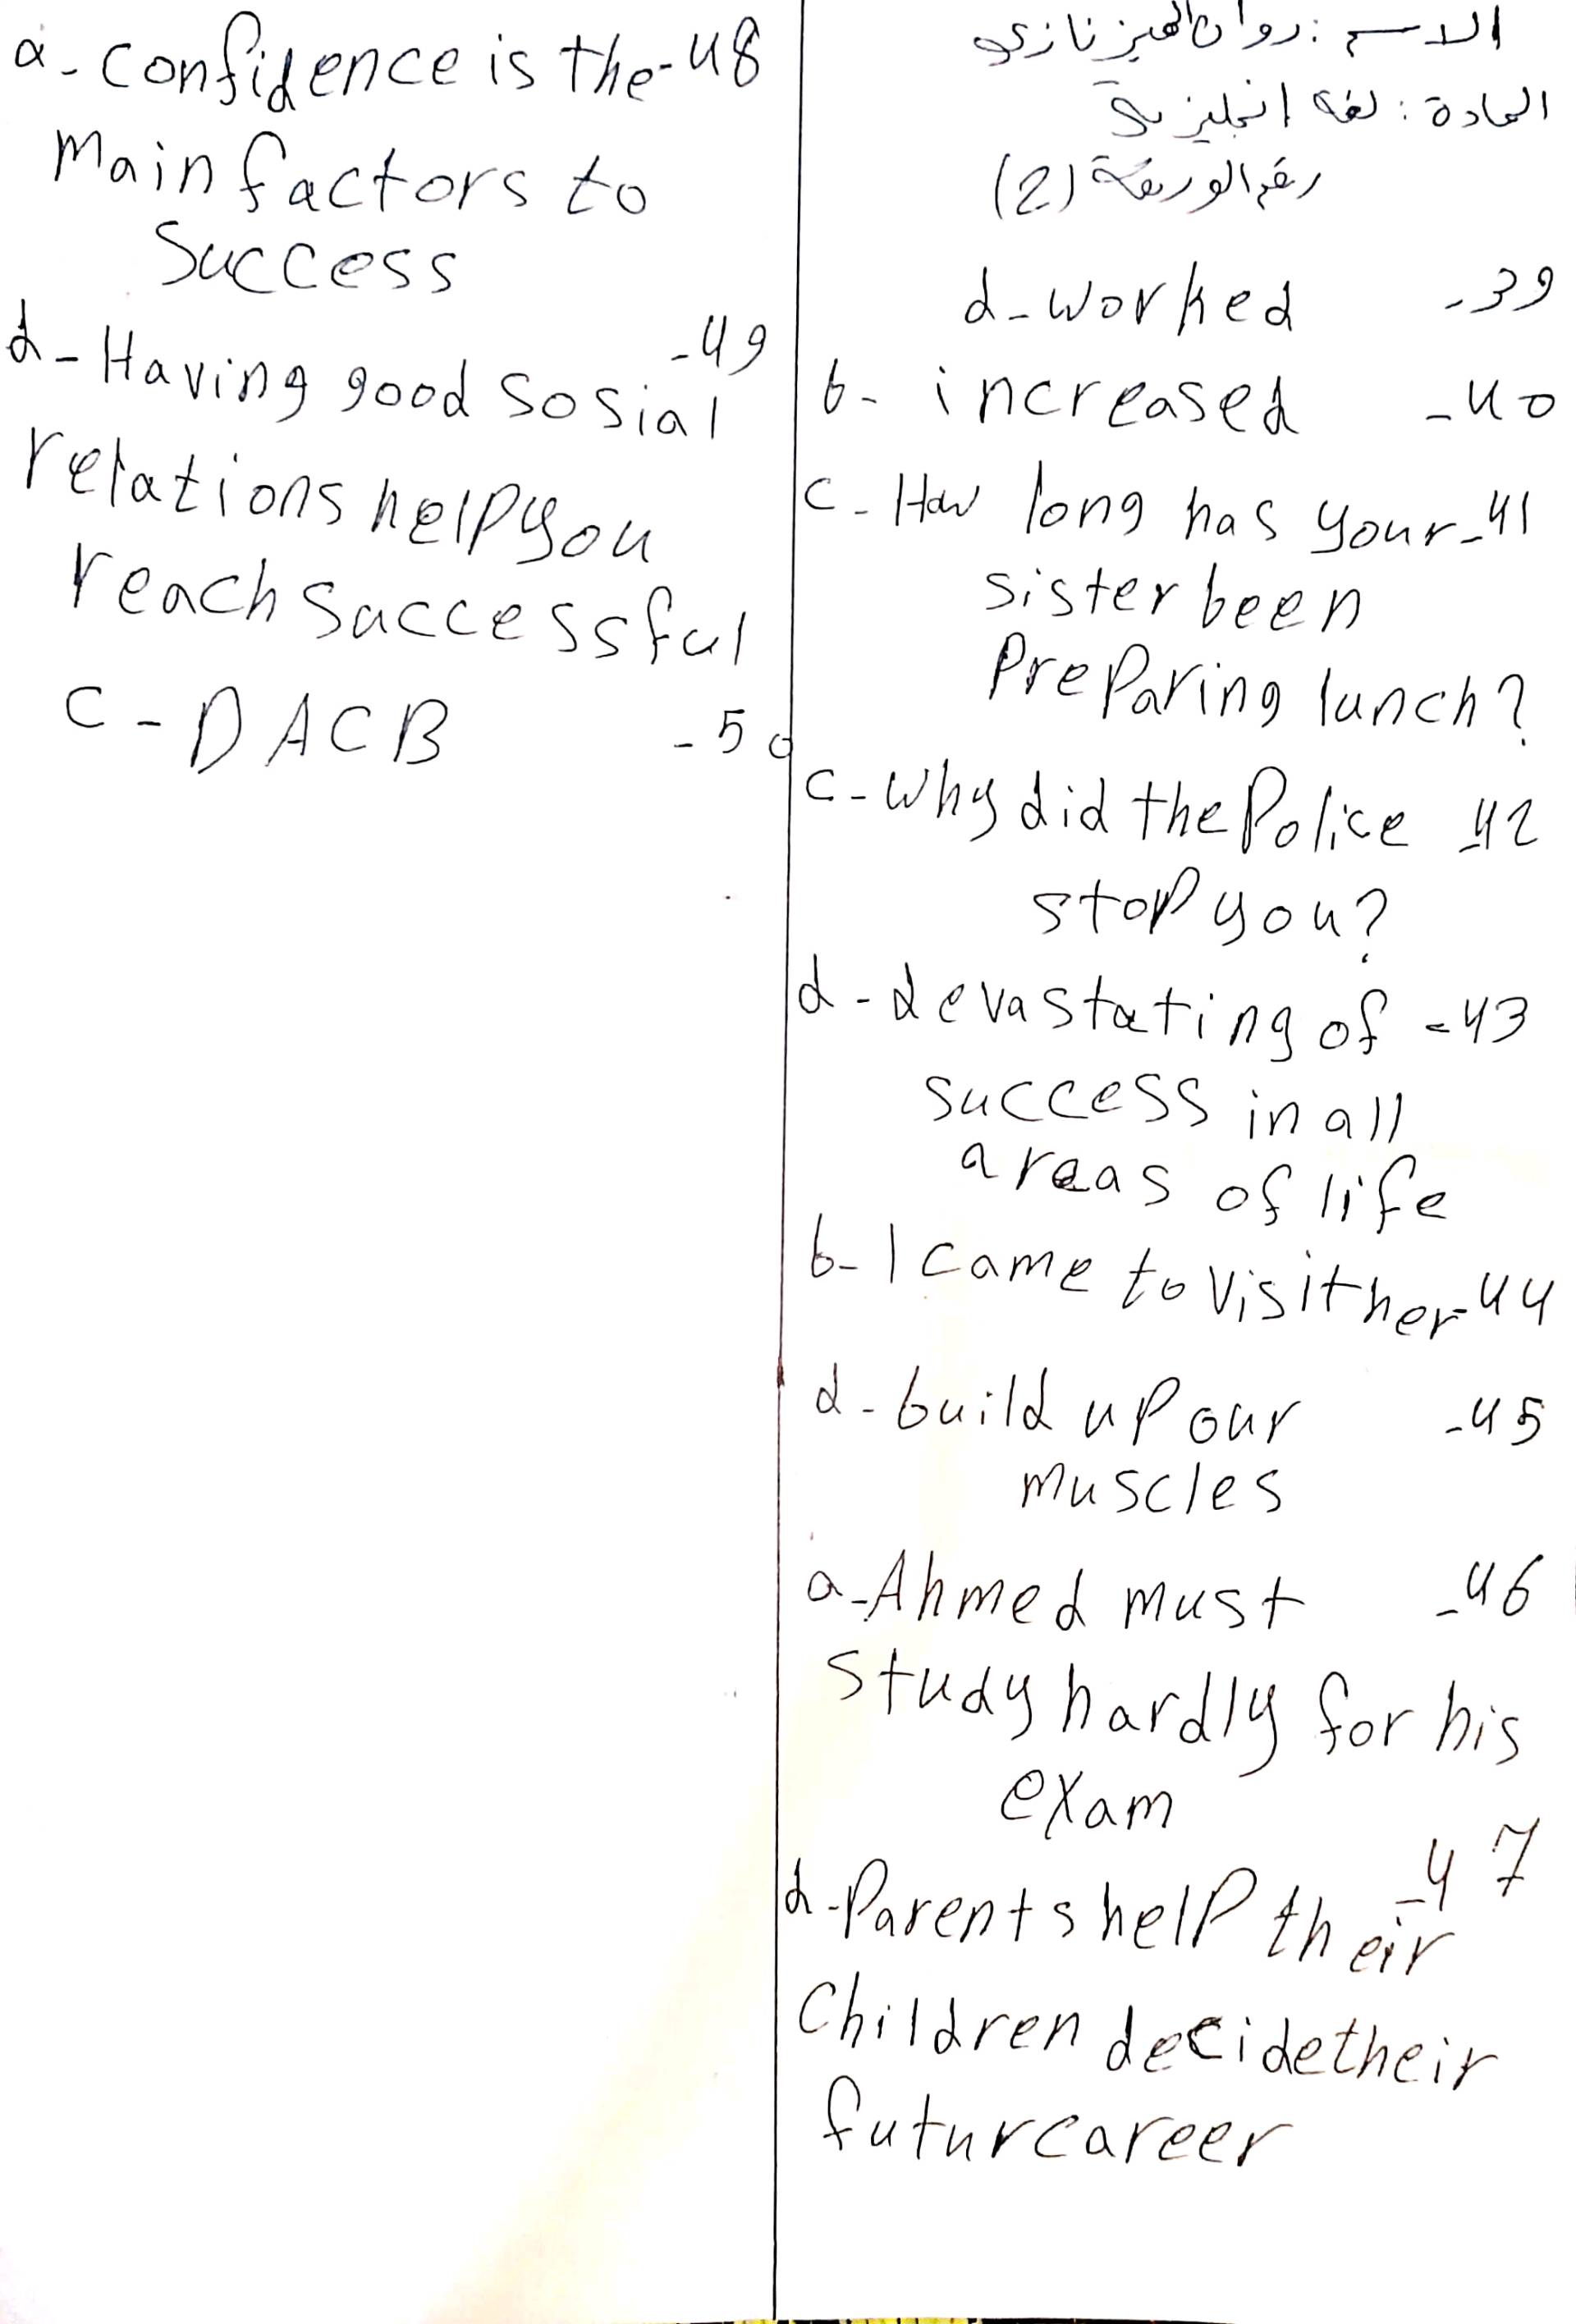 الاسم: روان الهيزنازي
المادة: لغة انجليزية
رقم الورقة (2)
d-worked -39
b- increased -40
c- How long has your -41
sister been
Preparing lunch?
c-Why did the Police -42
stop you?
d-devastating of -43
success in all
areas of life
b-I came to visit her -44
d-build up our -45
muscles
a-Ahmed must -46
study hardly for his
exam
-47
d-Parents help their
Children decide their
futur career
a-confidence is the -48
Main factors to
Success
-49
d-Having good sosial
relations help you
reach successful
c-DACB -50